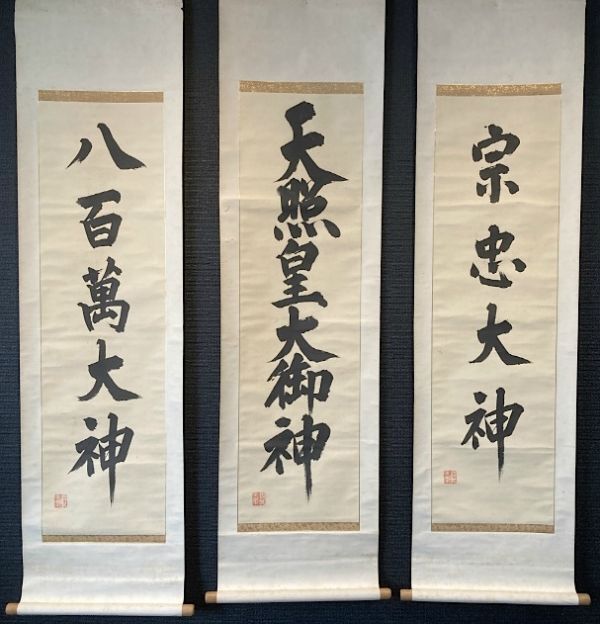 宗忠大神
天照皇大御神
八百萬大神